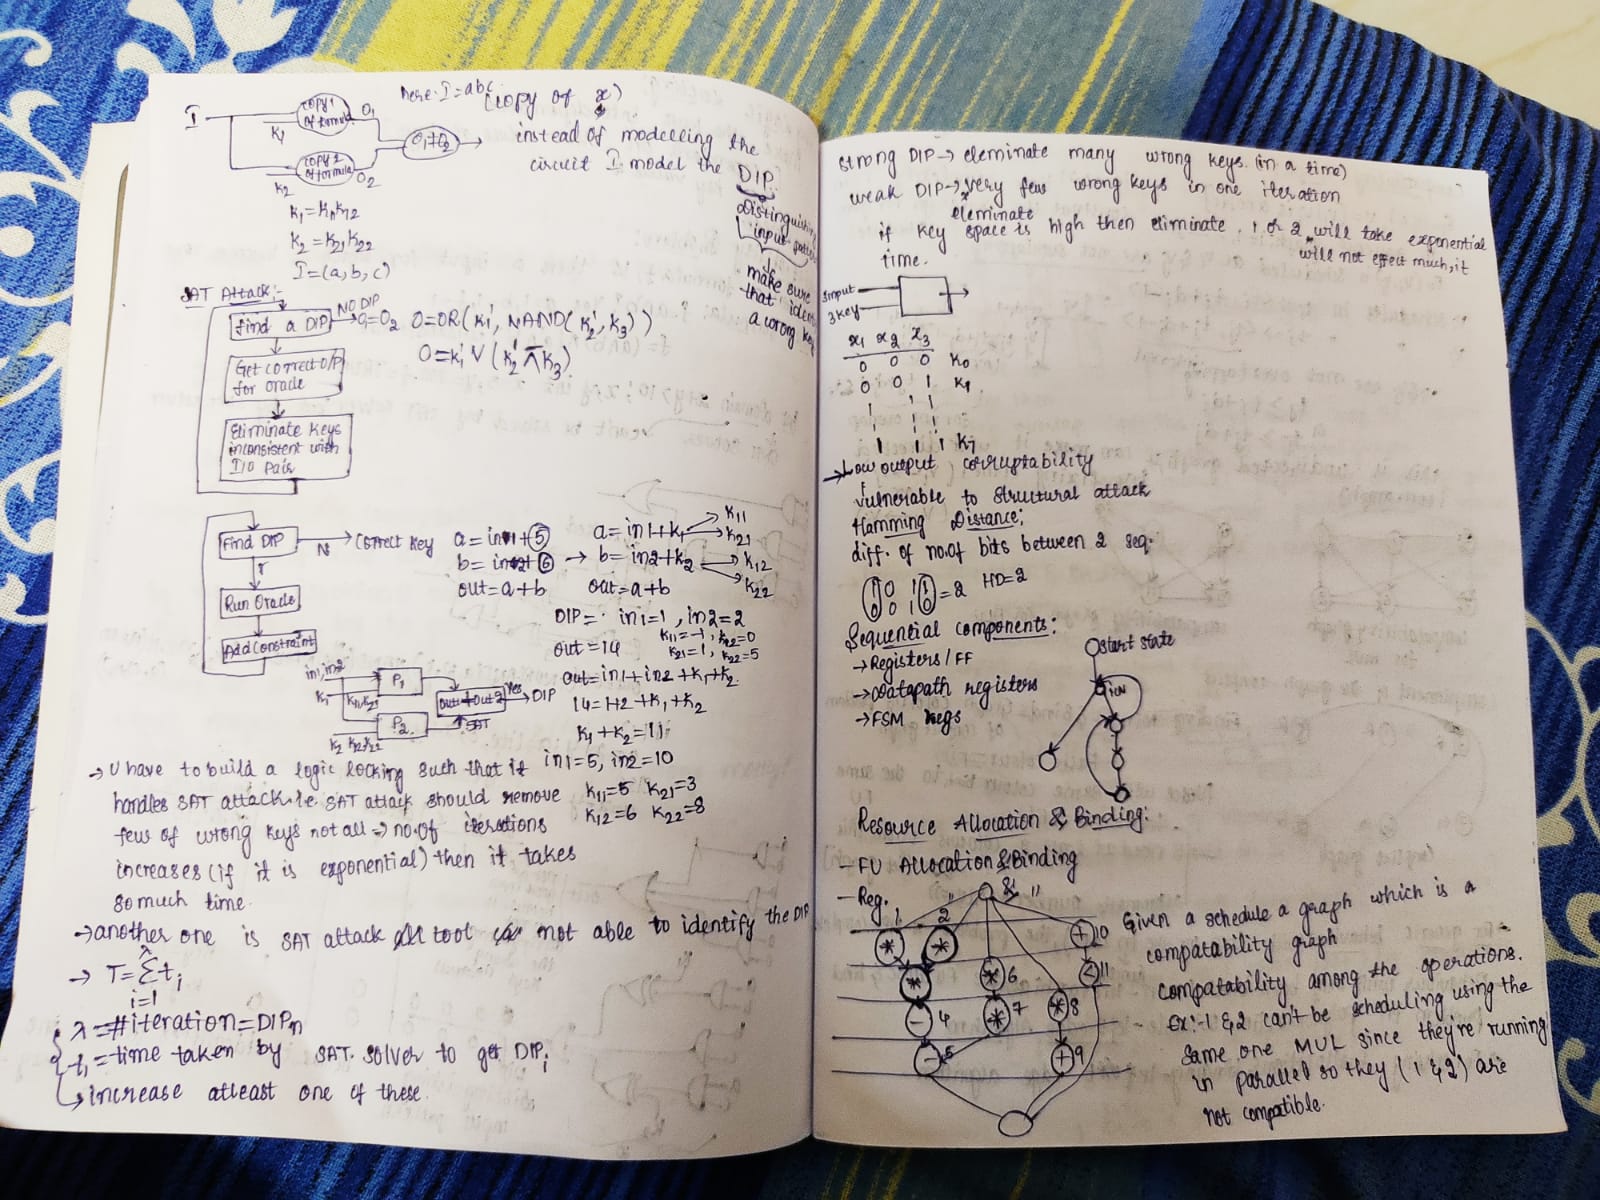 here. I = abc (copy of x)
I
copy 1 of formula
O1
K1
O1≠O2
copy 2 of formula
O2
K2
instead of modelling the
circuit I model the DIP.
Distinguishing
input pattern
make sure
that iden
a wrong key
K1 = K11K12
K2 = K21K22
I = (a, b, c)
SAT Attack:-
Find a DIP
NO DIP
O1=O2
O=OR(K1', NAND(K2', K3))
Get correct O/P
for oracle
O=K1' V (K2' ⊼ K3)
Eliminate Keys
inconsistent with
I/O pair
Find DIP
N
Correct Key
Y
Run Oracle
Add Constraint
a = in1 + 5
b = in2 + 6
out = a+b
a = in1+K1
K11
K21
b = in2+K2
K12
K22
out = a+b
DIP = in1=1, in2=2
out = 14
K11=-1, K12=0
K21=1, K22=5
out = in1+in2+K1+K2
14 = 1+2+K1+K2
K1+K2 = 11
in1=5, in2=10
K11=5 K21=3
K12=6 K22=8
in1, in2
K1
K11,K21
P1
P2
K2 K12,K22
out1≠out2
Yes
DIP
SAT
→ U have to build a logic locking such that it
handles SAT attack i.e. SAT attack should remove
few of wrong keys not all ⇒ no. of iterations
increases (if it is exponential) then it takes
so much time.
→ another one is SAT attack tool not able to identify the DIP
→ T = Σ ti
i=1
λ
λ = #iteration = DIPn
ti = time taken by SAT solver to get DIPi
→ increase atleast one of these.
strong DIP → eleminate many wrong keys. (in a time)
weak DIP → very few wrong keys in one iteration
eleminate
if key space is high then eliminate 1 or 2 will take exponential
will not effect much, it
time.
3input
3key
x1 x2 x3
0 0 0 K0
0 0 1 K1
1 1 1 K7
→ Low output corruptability
vulnerable to structural attack
Hamming Distance:
diff. of no. of bits between 2 seq.
1 0 1 1
0 0 1 0
= 2 HD=2
Sequential components:
→ Registers / FF
→ Datapath registers
→ FSM regs
start state
Resource Allocation & Binding:
- FU Allocation & Binding
- Reg. " & "
1
2
*
*
*
* 6
+ 10
< 11
- 4
* 7
* 8
- 5
+ 9
Given a schedule a graph which is a
compatability graph
compatability among the operations.
Ex:- 1 & 2 can't be scheduling using the
same one MUL since they're running
in parallel so they (1 & 2) are
not compatible.